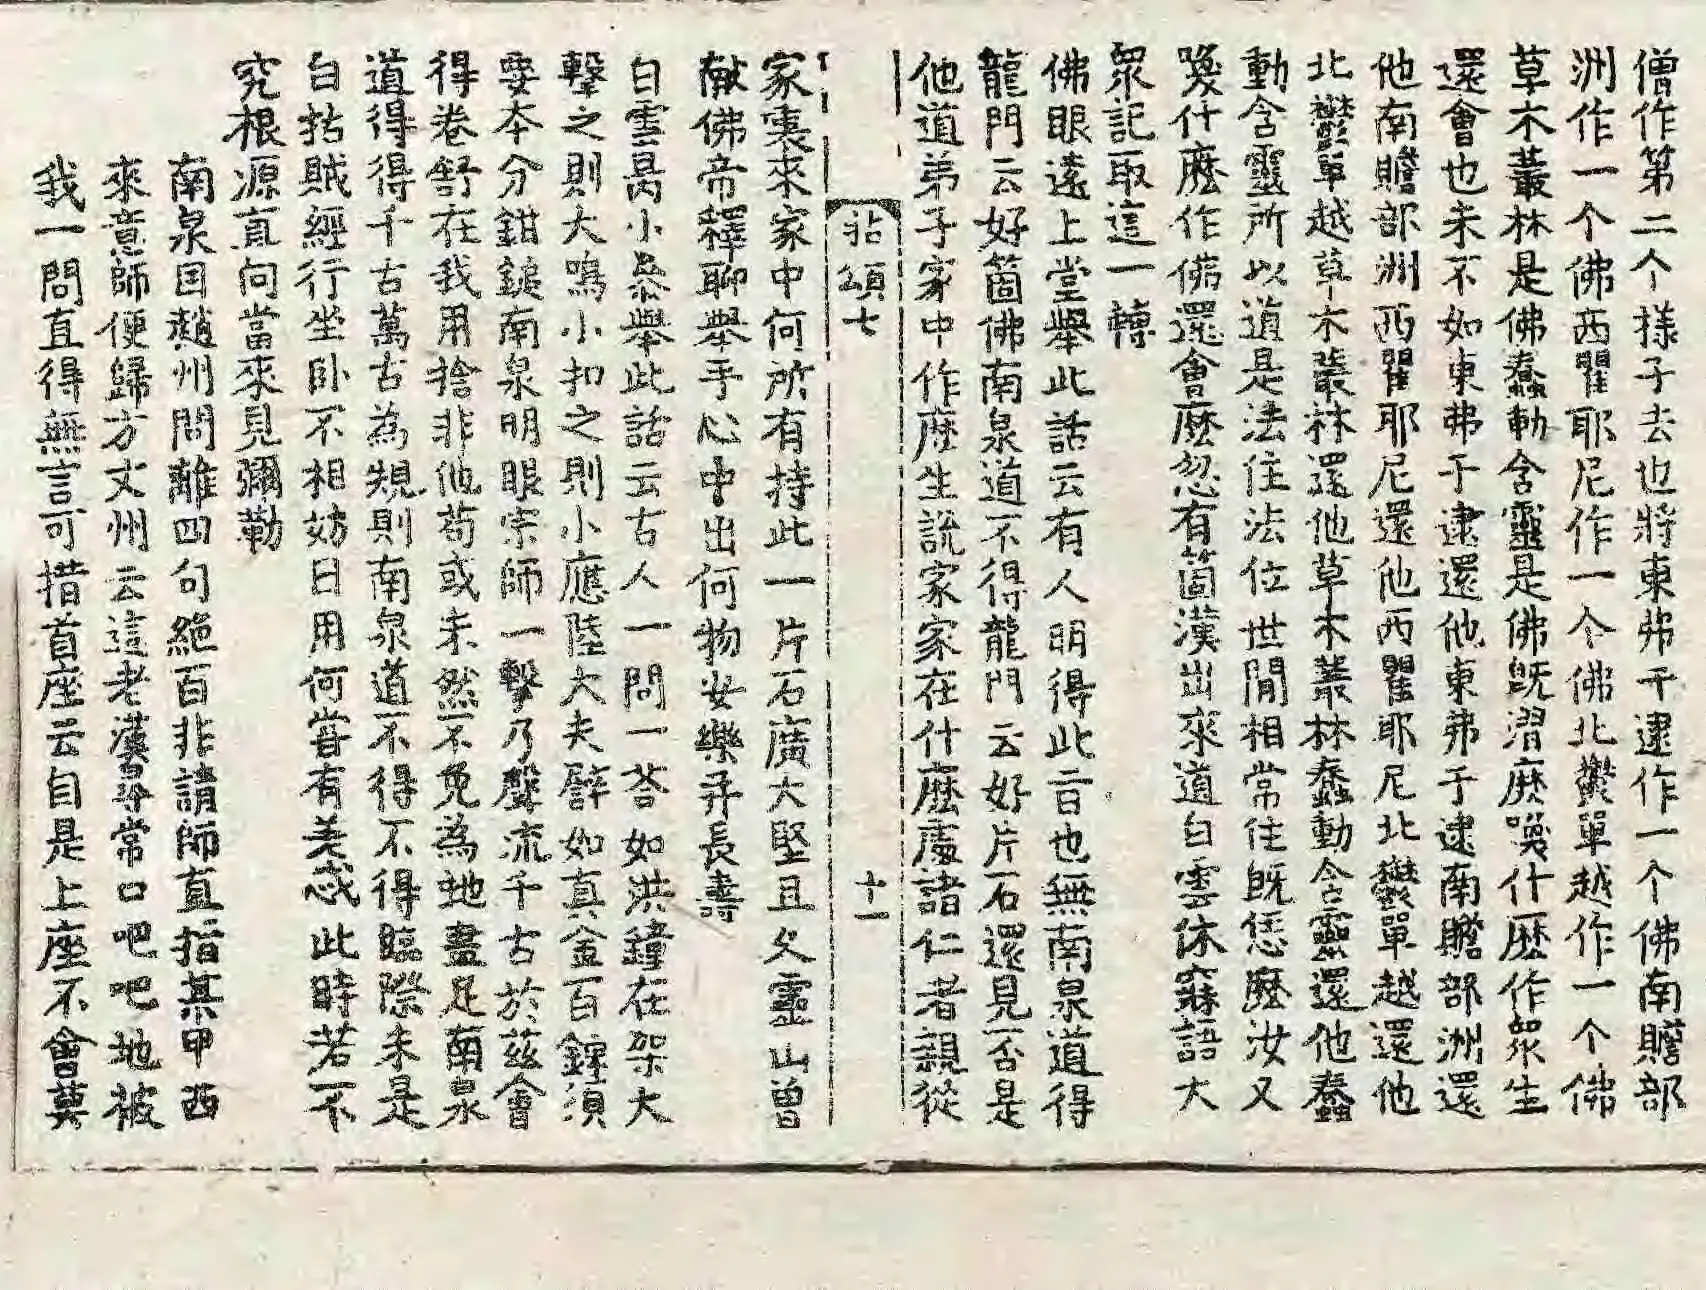 僧作第二个様子去也將東弗于逮作一个佛南贍部
洲作一个佛西瞿耶尼作一个佛北欝單越作一个佛
草木叢林是佛蠢動含靈是佛旣謂麽喚什麽作衆生
還會也未不如東弗于逮還他東弗于逮南贍部洲還
他南贍部洲西瞿耶尼還他西瞿耶尼北欝單越還他
北欝單越草木叢林還他草木叢林蠢動含靈還他蠢
動含靈所以道是法住法位世間相常住旣恁麽汝又
喚什麽作佛還會麽忽有箇漢出來道白雲休寐語大
衆記取這一轉
佛眼遠上堂擧此話云有人明得此旨也無南泉道得
龍門云好箇佛南泉道不得龍門云好片石還見否是
他道弟子家中作麽生說家家在什麽處諸仁者親從
拈頌七
十一
家裏來家中何所有持此一片石廣大堅且久靈山曾
獻佛帝釋聊擧手心中出何物安樂并長壽
白雲昺小叅擧此話云古人一問一荅如洪鐘在架大
擊之則大鳴小扣之則小應陸大夫譬如真金百鍊須
要本分鉗鎚南泉明眼宗師一擊乃聲流千古於茲會
得卷舒在我用捨非他苟或未然不免為虵畫足南泉
道得得千古萬古為規則南泉道不得不得臨際未是
白拈賊經行坐卧不相妨日用何甞有差惑此時若不
究根源直向當來見彌勒
南泉因趙州問離四句絕百非請師直指某甲西
來意師便歸方丈州云這老漢尋常口吧吧地被
我一問直得無言可措首座云自是上座不會莫